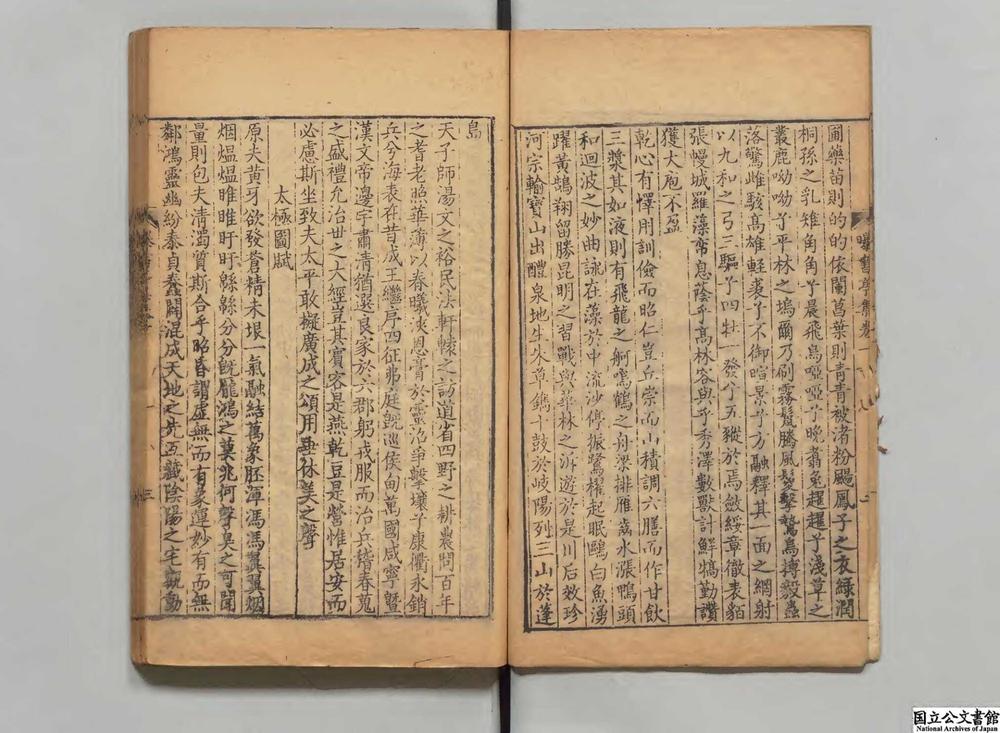 圃藥苗則的的依闌菖葉則青青被渚粉颺鳳子之衣綠潤
桐孫之乳雉角角于晨飛烏啞啞于晚翥兔趯趯于淺草之
叢鹿呦呦于平林之塢爾乃刷霧鬣騰風鬉擊鷙鳥搏毅蟲
落驚雌駭高雄輕裘于不御暄景于方融釋其一面之網射
以九和之弓三驅于四牡一發于五豵於焉斂綏章徹表貉
張幔城羅藻帟息蔭乎高林容與乎秀澤數獸計鮮犒勤讚
獲大庖不盈
乾心有懌用訓儉而昭仁豈丘崇而山積調六膳而作甘飲
三漿其如液則有飛龍之舸鳴鶴之舟梁排雁齒水漲鴨頭
和迴波之妙曲詠在藻於中流沙停振鷺櫂起眠鷗白魚湧
躍黃鵠翔留勝昆明之習戰與華林之泝遊於是川后效珍
河宗輸寶山出醴泉地生朱草鐫十鼓於岐陽列三山於蓬
島
天子師湯文之裕民法軒轅之訪道省四野之耕農問百年
之耆老照華薄以春曦浹恩膏於靈沼爭擊壤于康衢永銷
兵兮海表在昔成王繼序四征弗庭旣巡侯甸萬國咸寧曁
漢文帝邊宇肅清猶選良家於六郡躬戎服而治兵稽春蒐
之盛禮允治世之大經豈其賓客是燕乾豆是營惟居安而
必慮斯坐致夫太平敢擬廣成之頌用垂休美之聲
太極圖賦
原夫黃牙欲發蒼精未垠一氣融結萬象胚渾馮馮翼翼烟
烟熅熅睢睢盱盱緜緜分分旣朧鴻之莫兆何聲臭之可聞
量則包夫清濁質斯合乎昭昏謂虛無而有象運妙有而無
鄰鴻靈幽紛泰貞蠢闢混成天地之先互藏陰陽之宅觀動
曝書亭集卷一
二
三
国立公文書館
National Archives of Japan